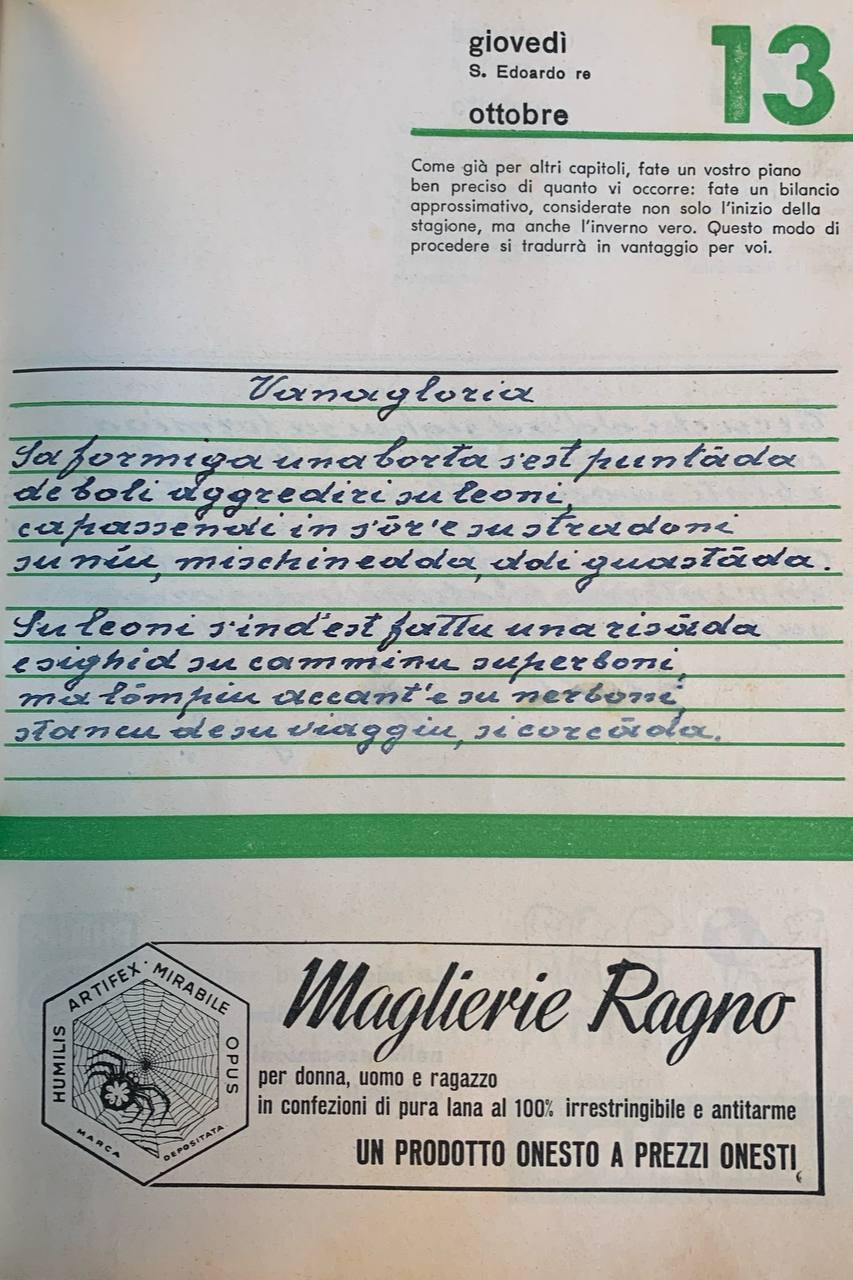 giovedì
S. Edoardo re
ottobre
13
Come già per altri capitoli, fate un vostro piano
ben preciso di quanto vi occorre: fate un bilancio
approssimativo, considerate non solo l'inizio della
stagione, ma anche l'inverno vero. Questo modo di
procedere si tradurrà in vantaggio per voi.
Vanagloria
Sa formiga una borta s'est puntāda
de boli aggrediri su leoni,
ca passendi in s'ōr'e su stradoni
su níu, mischinedda, ddi guastāda.
Su leoni s'ind'est fattu una risāda
e sighid su camminu superboni,
ma lōmpiu accant'e su nerboni,
stancu de su viaggiu, si corcāda.
HUMILIS ARTIFEX MIRABILE OPUS
MARCA DEPOSITATA
Maglierie Ragno
per donna, uomo e ragazzo
in confezioni di pura lana al 100% irrestringibile e antitarme
UN PRODOTTO ONESTO A PREZZI ONESTI